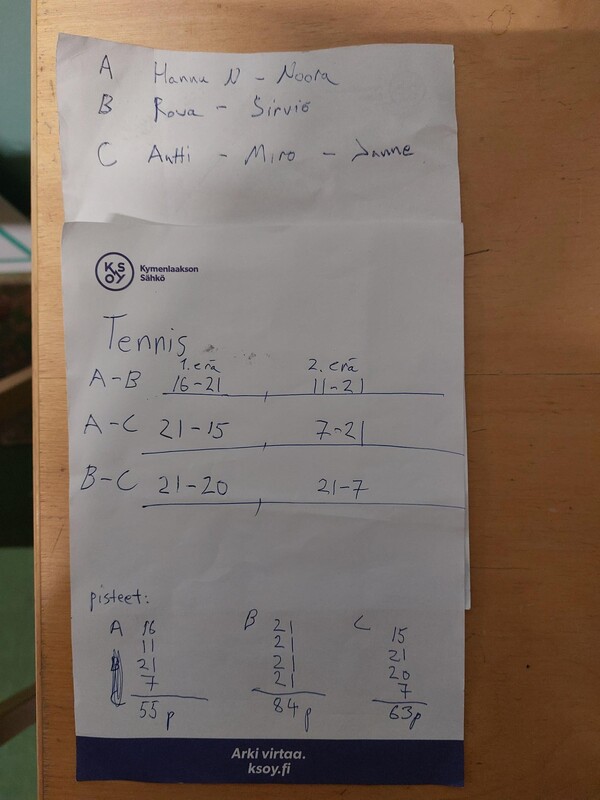 A Hannu N - Noora
B Rowa - Sirviö
C Antti - Miro - Janne
KSOY Kymenlaakson
Sähkö
Tennis
1. erä 2. erä
A-B 16-21, 11-21
A-C 21-15, 7-21
B-C 21-20, 21-7
pisteet:
A B C
16 21 15
11 21 21
21 21 20
7 21 7
55 p 84 p 63 p
Arki virtaa.
ksoy.fi